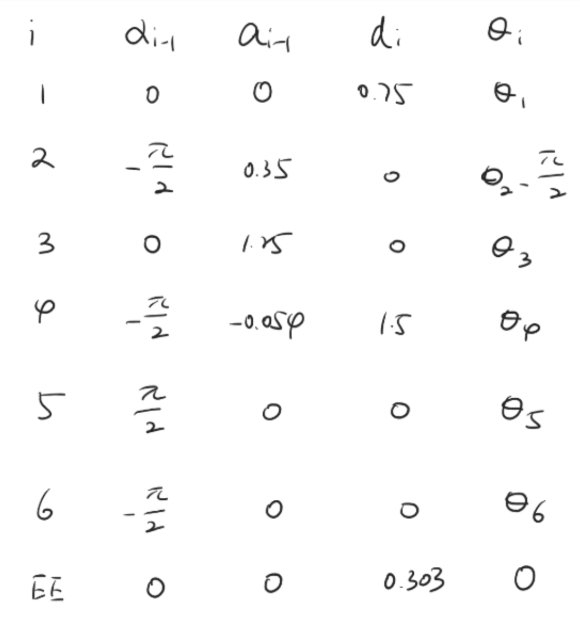 i αi-1 ai-1 di θi
1 0 0 0.75 θ1
2 -π/2 0.35 0 θ2-π/2
3 0 1.25 0 θ3
4 -π/2 -0.054 1.5 θ4
5 π/2 0 0 θ5
6 -π/2 0 0 θ6
EE 0 0 0.303 0